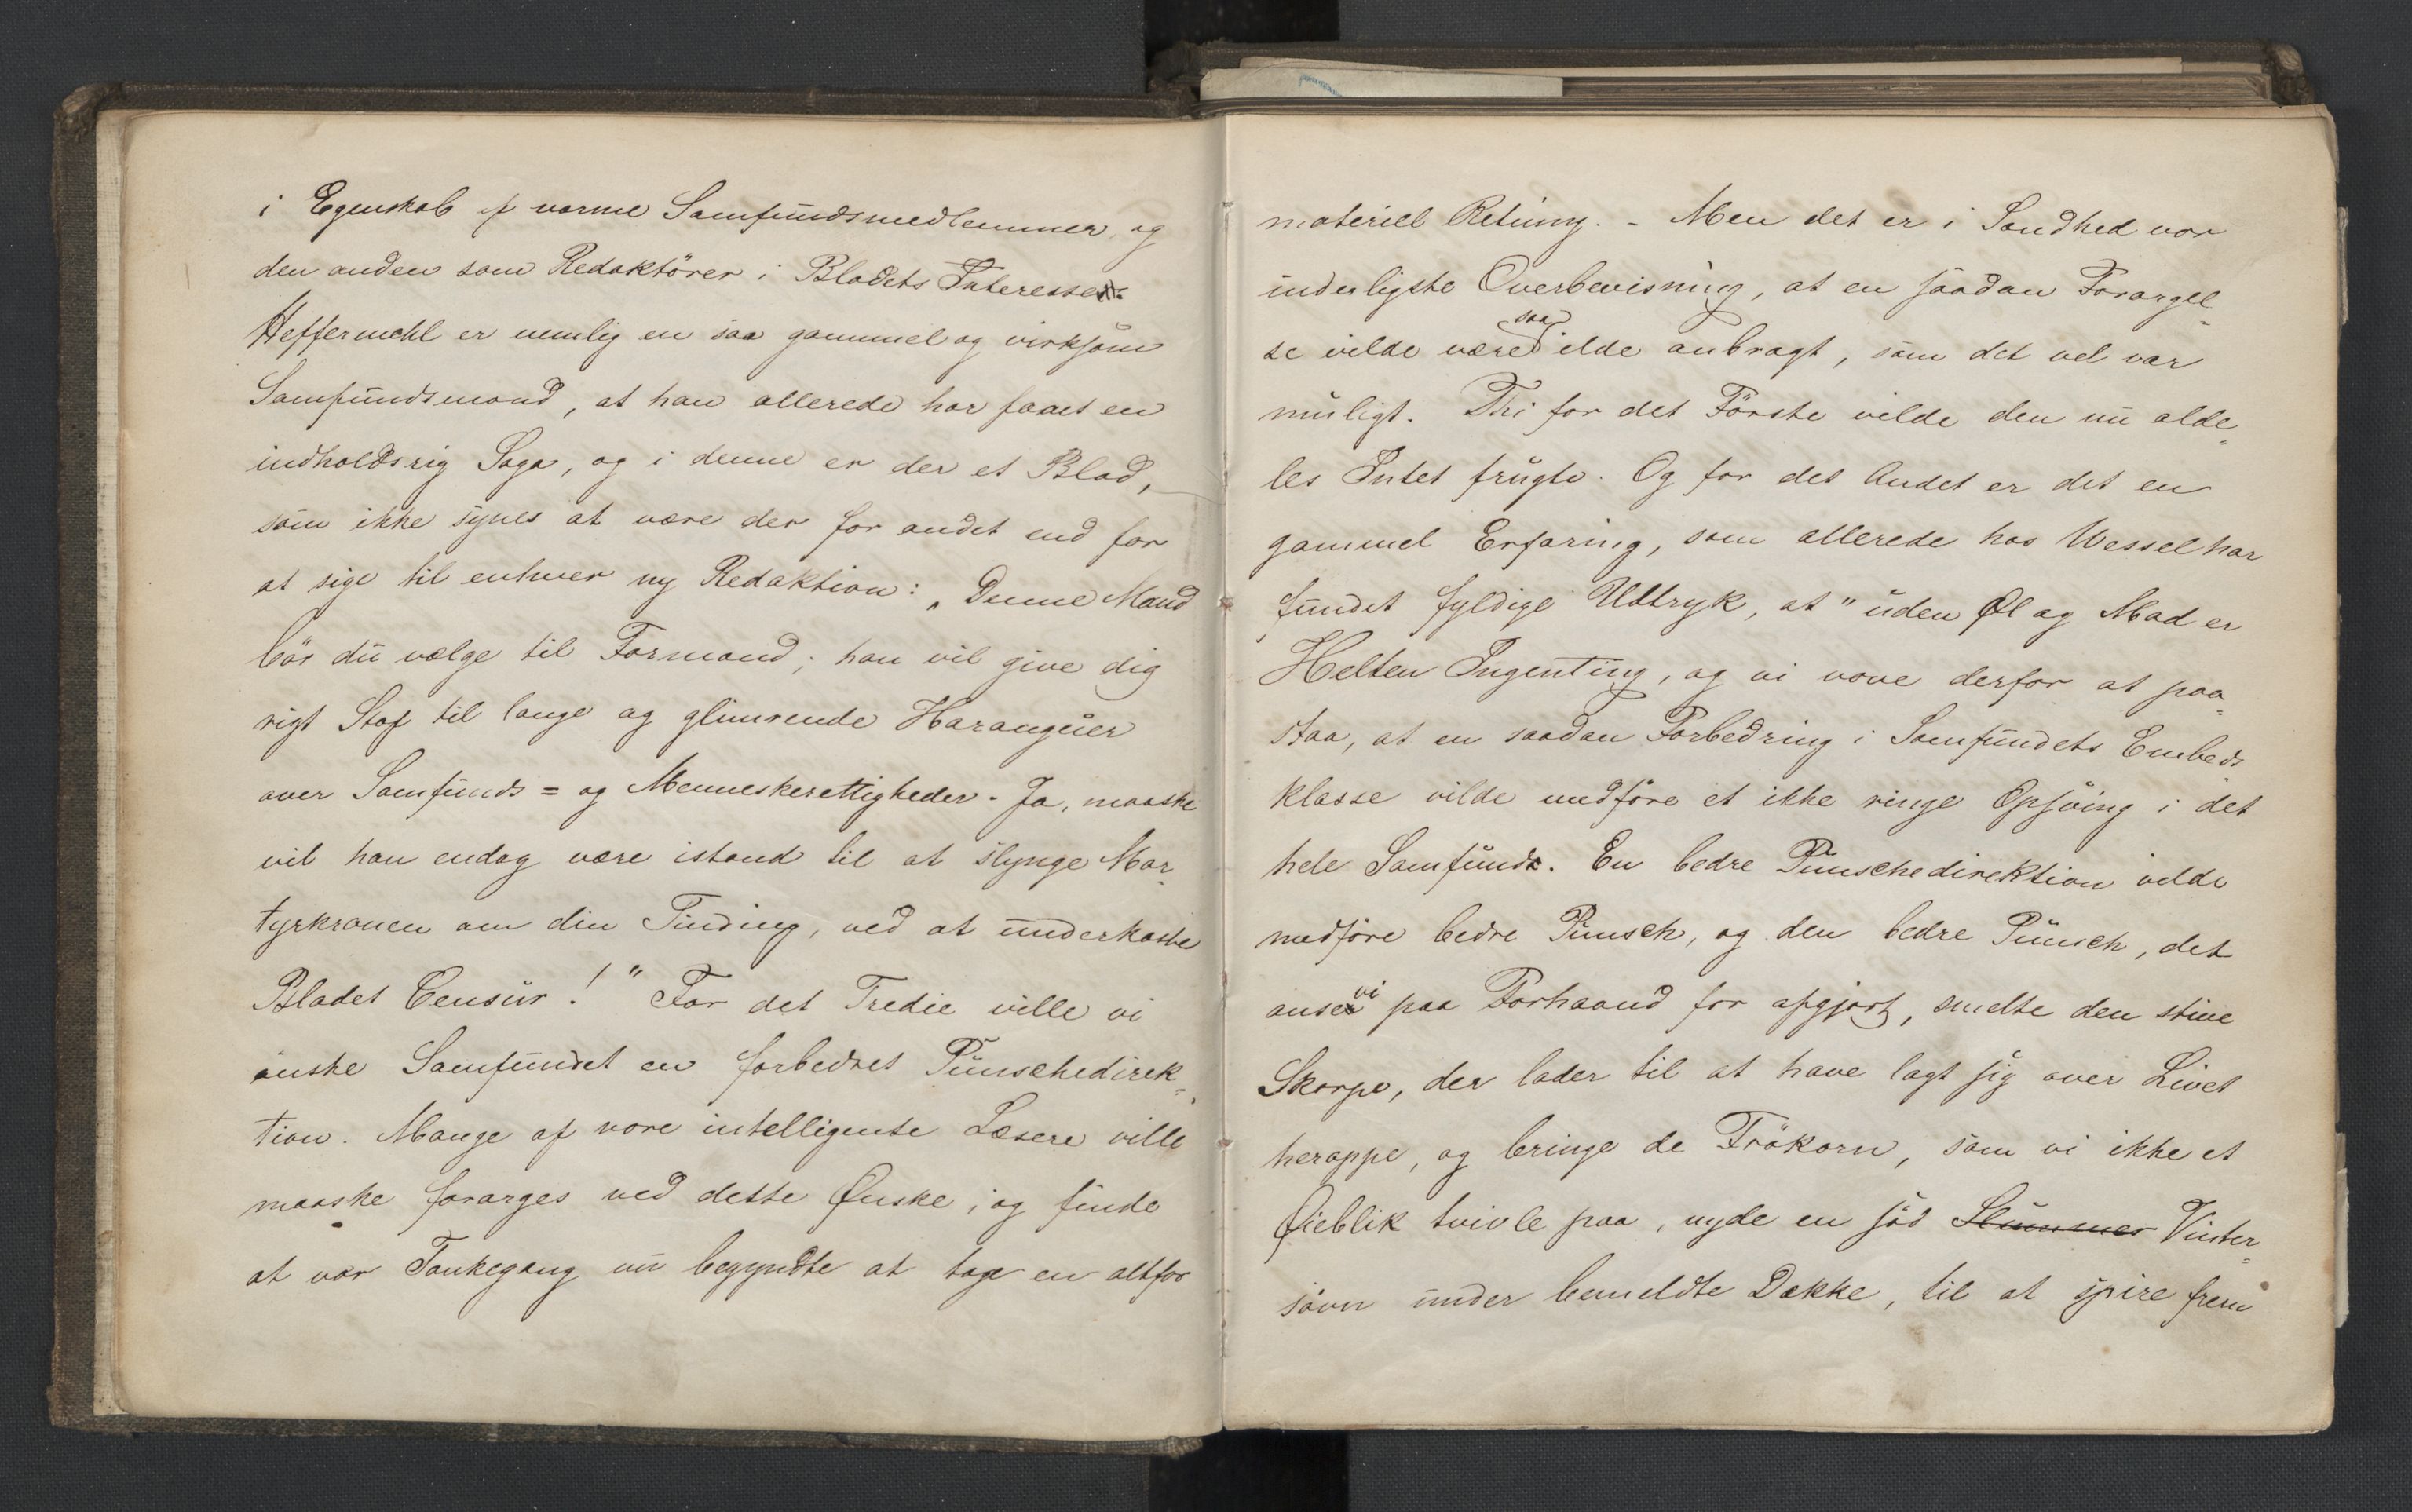 i Egenskab af varme Samfundsmedlemmer og
den anden som Redaktörer i Bladets Interesse.
Heffermehl er nemlig en saa gammel og virksom
Samfundsmand, at han allerede har faaet en
indholdsrig Saga, og i denne er der et Blad,
som ikke synes at være der for andet end for
at sige til enhver ny Redaktion: „Denne Mand
bör du vælge til Formand; han vil give dig
rigt Stof til lange og glimrende Haranguer
over Samfunds= og Menneskerettigheder. Ja, maaske
vil han endog være istand til at slynge Mar-
tyrkronen om din Tinding, ved at underkaste
Bladet Censur!" For det Tredie ville vi
önske Samfundet en forbedret Punschedirek-
tion. Mange af vore intelligente Læsere ville
maaske forarges ved dette Ønske, og finde
at vor Tankegang nu begyndte at tage en altfor
materiell Retning. – Men det er i Sandhed vor
inderligste Overbevisning, at en saadan Forargel-
se vilde være saa ilde anbragt, som det vel var
muligt. Thi for det Förste vilde den nu alde-
les Intet frugte. Og for det Andet er det en
gammel Erfaring, som allerede hos Wessel har
fundet fyldige Udtryk, at "uden Øl og Mad er
Helten Ingenting, og vi vove derfor at paa-
staa, at en saadan Forbedring i Samfundets Embeds-
klasse vilde medföre et ikke ringe Opsving i det
hele Samfund. En bedre Punschedirektion vilde
medföre bedre Punsch, og den bedre Punsch, det
anse vi paa Forhaand for afgjort, smelte den stive
Skorpe, der lader til at have lagt sig over Livet
heroppe, og bringe de Frökorn, som vi ikke et
Øieblik tvivle paa, nyde en söd Slummer Vinter-
sövn under bemeldte Dække, til at spire frem